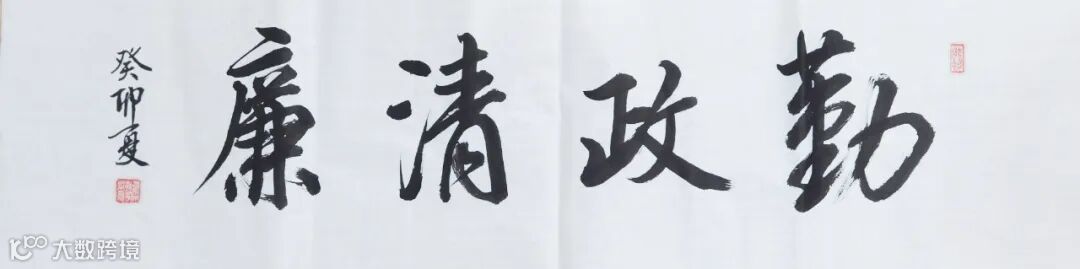 勤政清廉
癸卯夏
大数跨境